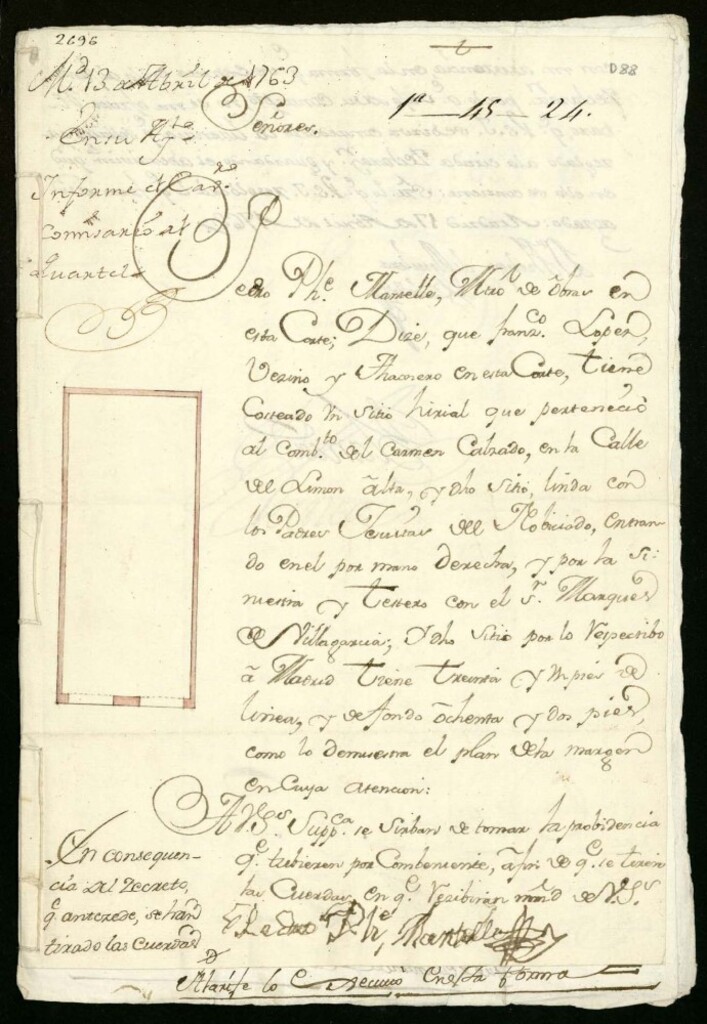 2696
D88
M.d 13 de Abril de 1763
1a - 45 - 24.
Señores.
En su Ay.to
Informe el Cav.ro
Comisario del
Quartel
Pedro Phe. Mantelle, Mtro. de obras en
esta Corte; Dize, que franz.co Lopez,
Vezino y Thaonero en esta Corte, tiene
Costeado Un sitio hirial que perteneció
al Comb.to del Carmen Calzado, en la Calle
del Limon alta, y dho sitio, linda con
los Padres Jesuitas del Nobiciado, entran-
do en el por mano derecha, y por la si-
niestra y testero con el Sr. Marques
de Villagarcia; Y dho Sitio por lo Respectibo
a Madrid tiene treinta y un pies de
linea, y de fondo ochenta y dos pies,
como lo demuestra el plan de la margen
en Cuya atencion:
A V.Ss. Supp.ca se sirban de tomar la probidencia
q.e tubieren por Combeniente, a fin de q.e se tiren
las Cuerdas, en q.e Rezibirán mrd de V.Ss.
Pedro Phe. Mantelle
En consequen-
cia del Decreto,
q.e antecede, se han
tirado las Cuerdas
Alarife lo executo en esta forma